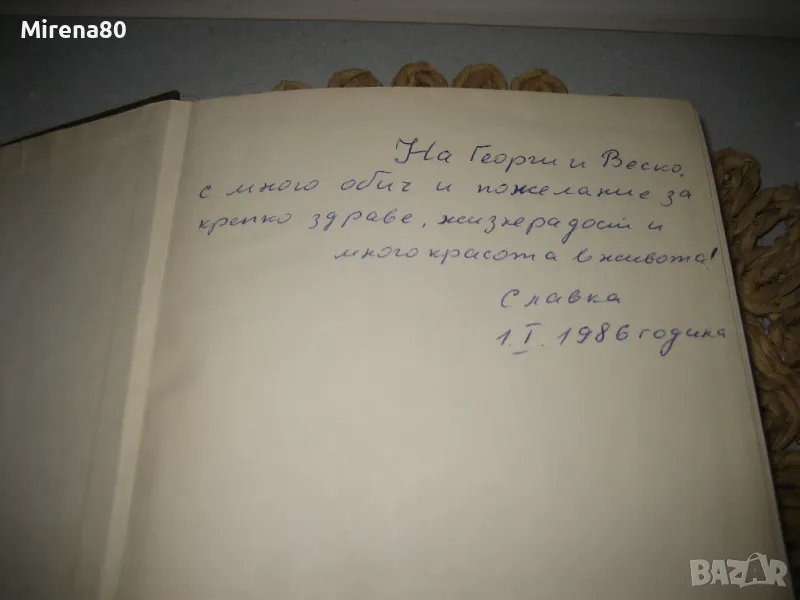 Mirena80
На Георги и Веско,
с много обич и пожелание за
крепко здраве, жизнерадост и
много красота в живота!
Славка
1.I.1986 година
BAZAR